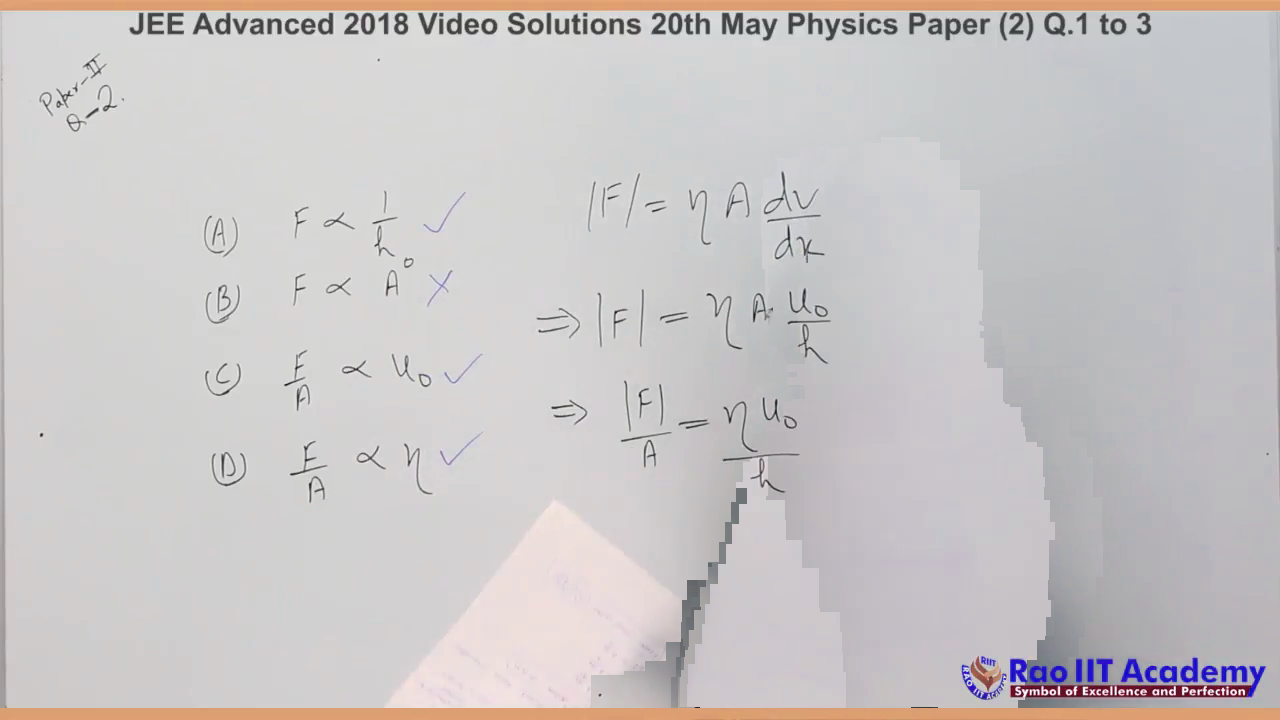 JEE Advanced 2018 Video Solutions 20th May Physics Paper (2) Q.1 to 3
Paper-II
Q-2.
(A) F ∝ 1/h ✓
(B) F ∝ A° ✗
(C) F/A ∝ u₀ ✓
(D) F/A ∝ η ✓
|F| = η A dv/dx
⇒ |F| = η A. u₀/h
⇒ |F|/A = η u₀/h
RIIT
RAO IIT ACADEMY
Rao IIT Academy
Symbol of Excellence and Perfection